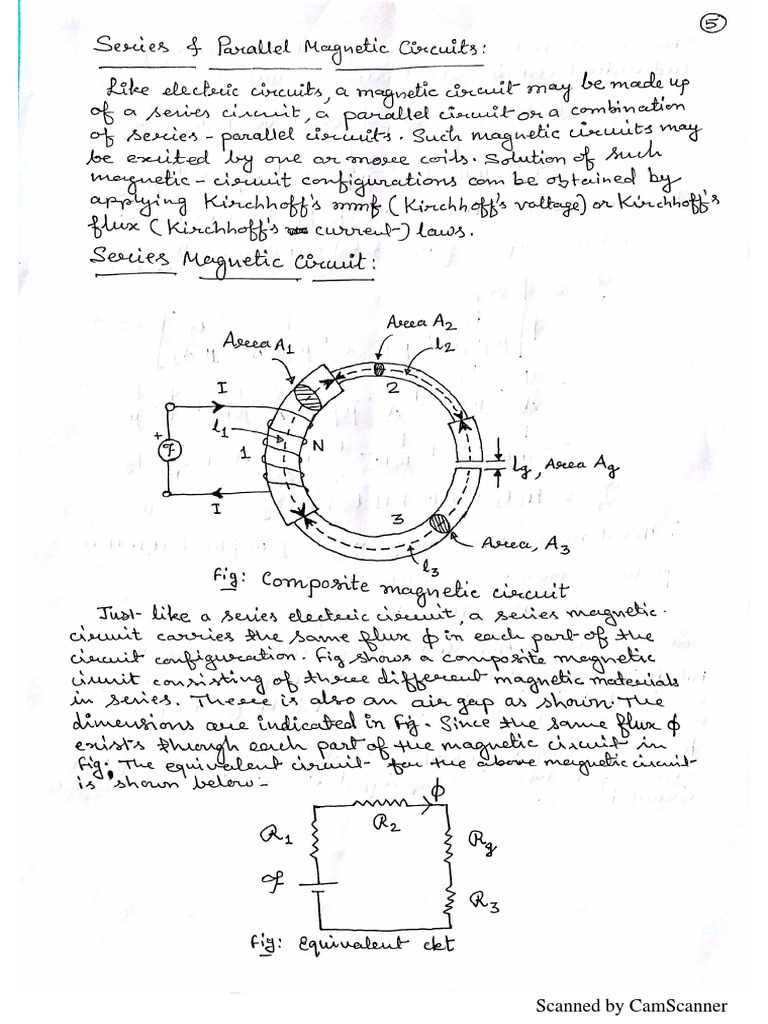 5
Series & Parallel Magnetic Circuits:
Like electric circuits, a magnetic circuit may be made up
of a series circuit, a parallel circuit or a combination
of series - parallel circuits. Such magnetic circuits may
be excited by one or more coils. Solution of such
magnetic - circuit configurations can be obtained by
applying Kirchhoff's mmf (Kirchhoff's voltage) or Kirchhoff's
flux (Kirchhoff's current) laws.
Series Magnetic Circuit:
Area A2
Area A1
l2
I
2
l1
N
+
F
1
lg, Area Ag
I
3
Area, A3
l3
Fig: Composite magnetic circuit
Just like a series electric circuit, a series magnetic
circuit carries the same flux ϕ in each part of the
circuit configuration. Fig shows a composite magnetic
circuit consisting of three different magnetic materials
in series. There is also an air gap as shown. The
dimensions are indicated in Fig. Since the same flux ϕ
exists through each part of the magnetic circuit in
Fig. The equivalent circuit for the above magnetic circuit
is shown below -
ϕ
R1
R2
Rg
F
R3
Fig: Equivalent ckt
Scanned by CamScanner